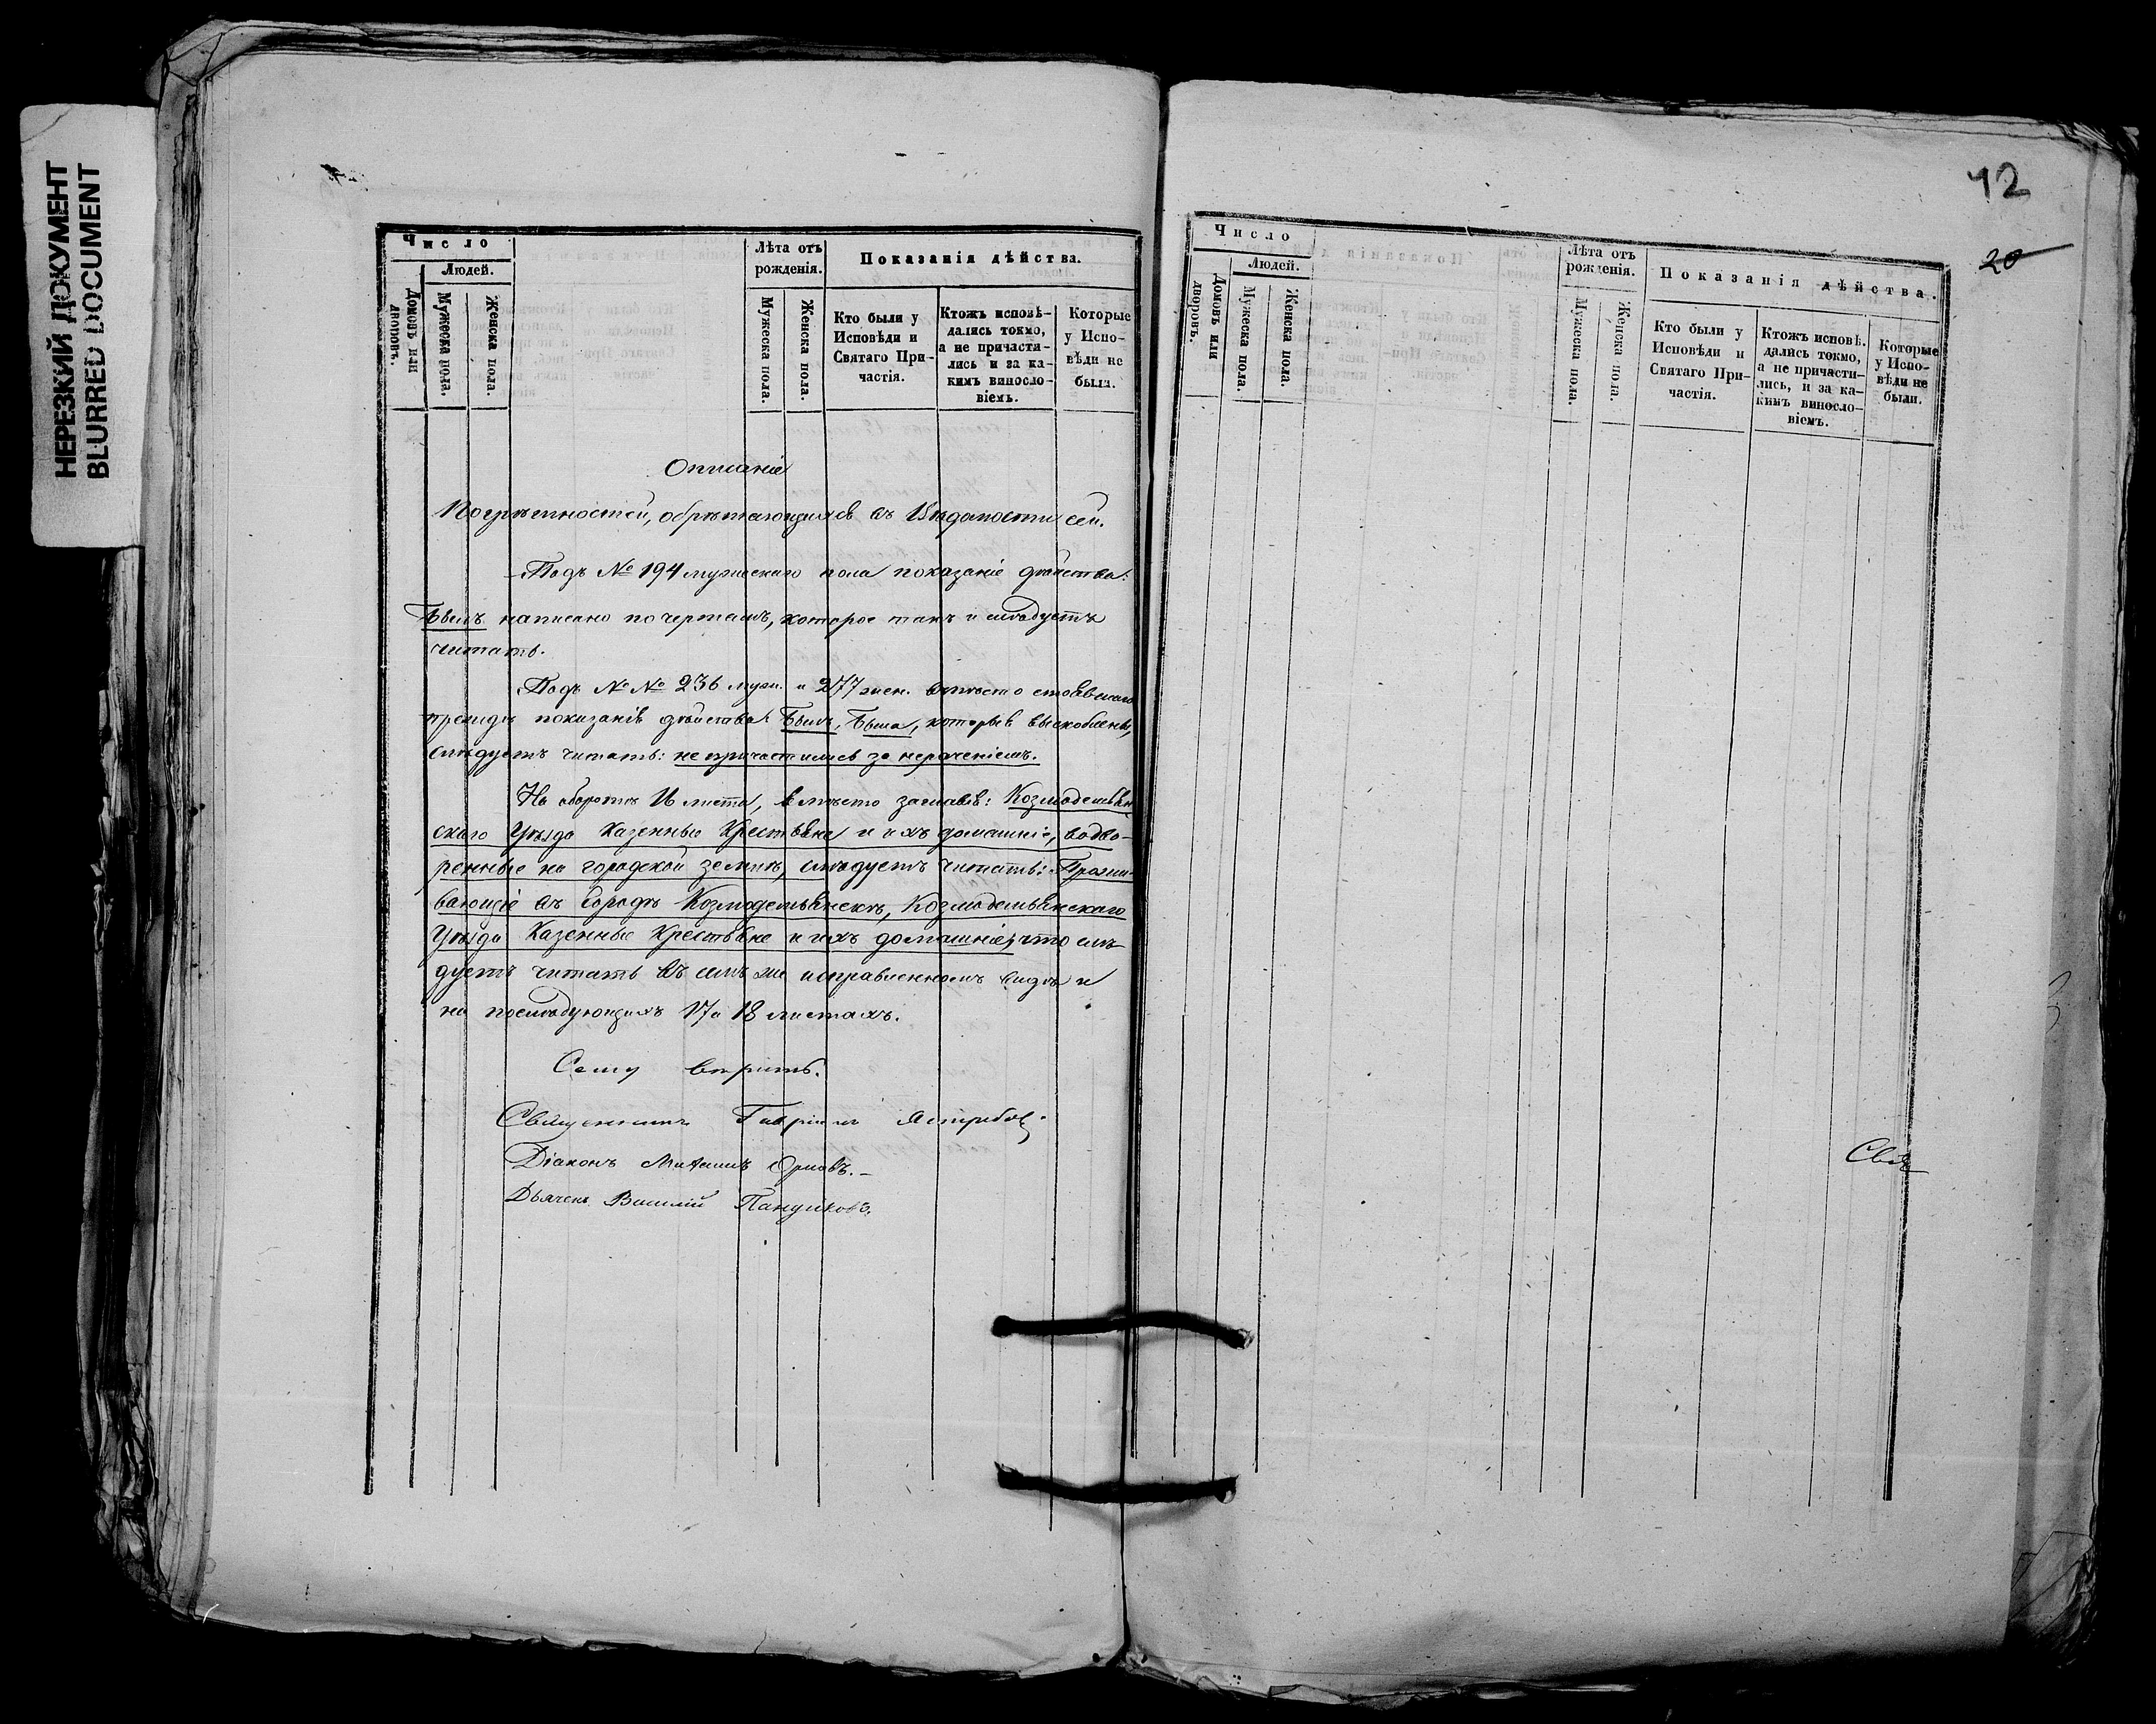 НЕРЕЗКИЙ ДОКУМЕНТ
BLURRED DOCUMENT
Число
Людей.
Домовъ или дворовъ.
Мужеска пола.
Женска пола.
Лѣта отъ рожденія.
Мужеска пола.
Женска пола.
Показанія дѣйства.
Кто были у Исповѣди и Святаго При-частія.
Ктожъ исповѣ-дались токмо, а не причасти-лись и за ка-кимъ виносло-віемъ.
Которые у Испо-вѣди не были.
Описаніе
Погрѣшностей, обрѣтающихся въ Вѣдомости сей.
Подъ № 194 мужескаго пола показаніе дѣйства:
Былъ написано по черткамъ, которое такъ и слѣдуетъ
читать.
Подъ №№ 236 муж. и 277 жен. вмѣсто стоявшаго
прежде показанія дѣйства: Былъ, Была, которыя выскоблены,
слѣдуетъ читать: не причастились за нераченіемъ.
На оборотѣ 16 листа, вмѣсто заглавія: Козмодемьян-
скаго Уѣзда Казенные Крестьяне и ихъ домашніе, водво-
ренные на городской землѣ, слѣдуетъ читать: Прожи-
вающіе въ Городѣ Козмодемьянскѣ, Козмодемьянскаго
Уѣзда Казенные Крестьяне и ихъ домашніе; что слѣ-
дуетъ читать въ семъ же исправленномъ видѣ и
на послѣдующихъ 17 и 18 листахъ.
Сему вѣрить.
Священникъ Гавріилъ Ястребов
Діаконъ Михаилъ Орловъ.
Дьячекъ Василій Пандиковъ.
42
20
Число
Людей.
Домовъ или дворовъ.
Мужеска пола.
Женска пола.
Лѣта отъ рожденія.
Мужеска пола.
Женска пола.
Показанія дѣйства.
Кто были у Исповѣди и Святаго При-частія.
Ктожъ исповѣ-дались токмо, а не причасти-лись, и за ка-кимъ виносло-віемъ.
Которые у Испо-вѣди не были.
Свя